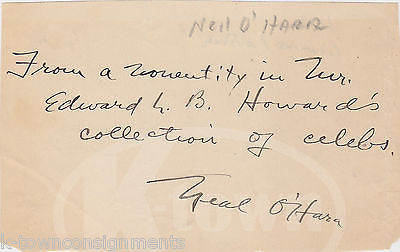 NEIL O'HARA
From a nonentity in Mr.
Edward L. B. Howard's
collection of celebs.
Neal O'Hara
K-TOWN
© k-townconsignments